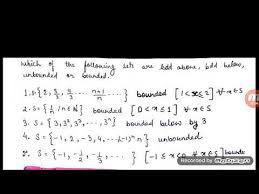 which of the following sets are bdd above, bdd below,
unbounded or bounded.
1. S={2, 3/2, 4/3 ... n+1/n} bounded [1<x≤2] ∀ x∈S
2. S={1/n / n∈N} bounded [0<x≤1] ∀ x∈S
3. S={3, 3², 3³, ..., 3ⁿ} bounded below by 3
4. S={-1, 2, -3, 4, ...(-1)ⁿ n} unbounded
S={-1, -1/2, -1/3, ...} [-1≤x<0 ∀ x∈S] bounde